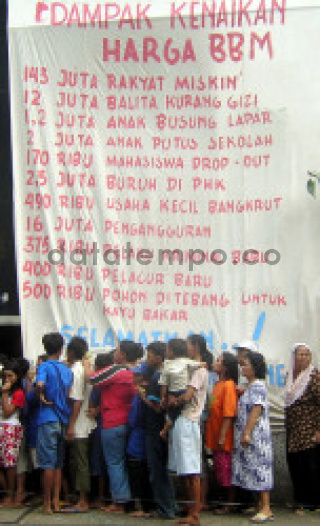 DAMPAK KENAIKAN
HARGA BBM
143 JUTA RAKYAT MISKIN
12 JUTA BALITA KURANG GIZI
1,2 JUTA ANAK BUSUNG LAPAR
2 JUTA ANAK PUTUS SEKOLAH
170 RIBU MAHASISWA DROP-OUT
2,5 JUTA BURUH DI PHK
490 RIBU USAHA KECIL BANGKRUT
16 JUTA PENGANGGURAN
375 RIBU
datatempo.co
400 RIBU PELACUR BARU
500 RIBU POHON DITEBANG UNTUK
KAYU BAKAR